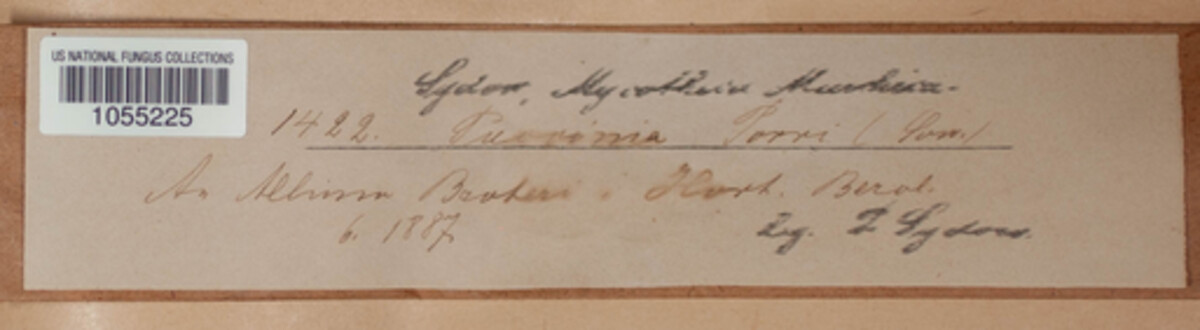 US NATIONAL FUNGUS COLLECTIONS
1055225
Sydow, Mycotheca Marchica.
1422. Puccinia Porri (Sow.)
An Allium Broteri. Hort. Berol.
6. 1887
Leg. P Sydow.